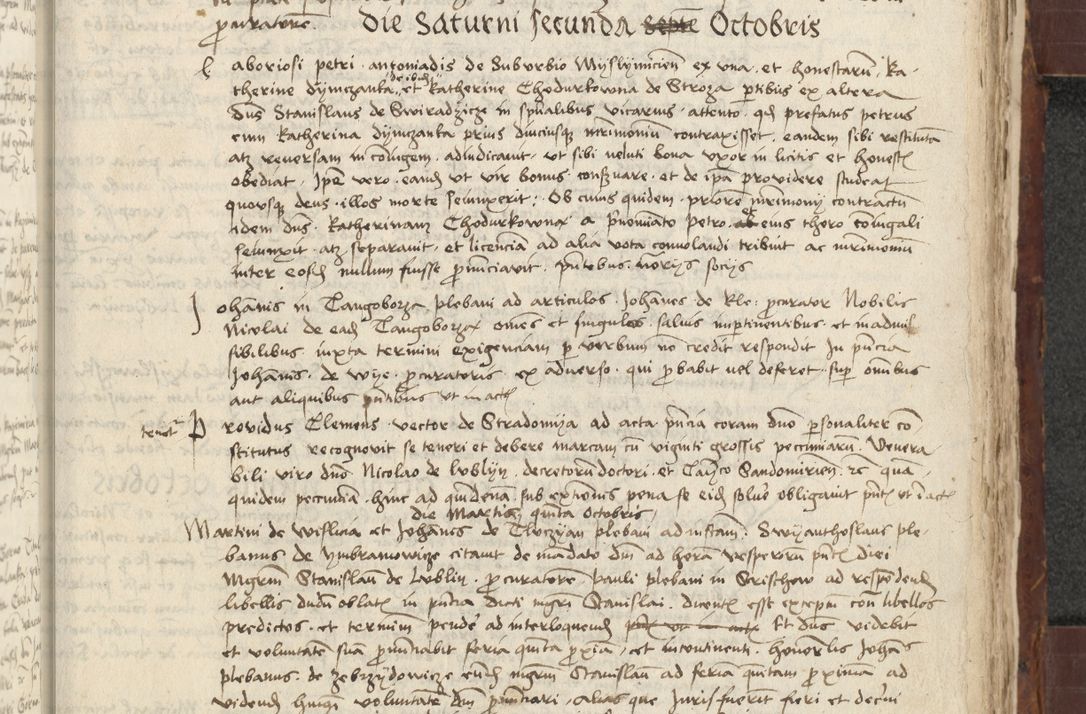 procuratore.
Die Saturni secunda Octobris
Laboriosi petri antoniadis de Suburbio Myslymicien ex una et honestarum Ka-
therine Dymczanka de ibidem et Katherine Chodurkowna de Stroza partibus ex altera
dns Stanislaus de Swiradzicze in spualibus vicarius attento qd prefatus petrus
cum Katherina Dymczanka prius dinciusque mrimonium contraxisset eandem sibi restituta
atz reversam in coniugem adiudicavit ut sibi veluti bona uxor in licitis et honest
obediat Ipse vero eand ut vir bonus conservare et de ipa providere studeat
quousque deus illos morte seiunxerit Ob cuius quidem priore mrimonij contractu
idem dns Katherinam Chodurkowna a prenuiato petro ab eius thoro coniugali
seiunxit atz separavit et licencia ad alia vota convolandi tribuit ac mrimonium
inter eosd nullum fuisse pronuciavit pntibus notorijs socijs
Johanis in Tangoborza plebani ad articulos Johanes de Kle procurator Nobilis
Nicolai de ead Tangoborza omes et singulos salvis inpertinentibus et inadmis
sibilibus iuxta termini exigenciam per verbum no credit respondit In pncia
Johanis de Wije procuratoris ex adverso qui probabit vel deferet super omibus
aut aliquibus pntibus ut in act
tenet Providus Clemens rector de Stradomija ad acta pncia coram dno personaliter co
stitutus recognovit se teneri et debere marcam cu viginti grossis pecuniaru Venera
bili viro dno Nicolao de lublyn decretoru doctori et Canco Sandomirien etc quam
quidem pecunia hinc ad quindena sub exconis pena se eid solve obligavit pnt ut in act
die Martis quinta Octobris
Martini de Wislicia et Johanis de Tluczan plebani ad instam Swyanthoslaus ple-
banus de ymbramowicze citavit de mandato dni ad hora vesperoru pnt diei
Mgrum Stanislau de Lublin procuratore pauli plebani in Gristhow ad respondend
libellis dudu oblat in pncia dicti mgri Stanislai dicent esse exceptu contra libellos
predictos et termin pende ad interloquend Et dns videbit
et voluntate sua pronunciabit feria quinta proxia et incontinenti honorabilis Johans
plebanus de Zebrzydowicze eund mgrum Stanislau ad feria quintam proximam ad
videnda huiusmodi voluntate dni pronunciari alias que Juris fuerint fieri et decerni